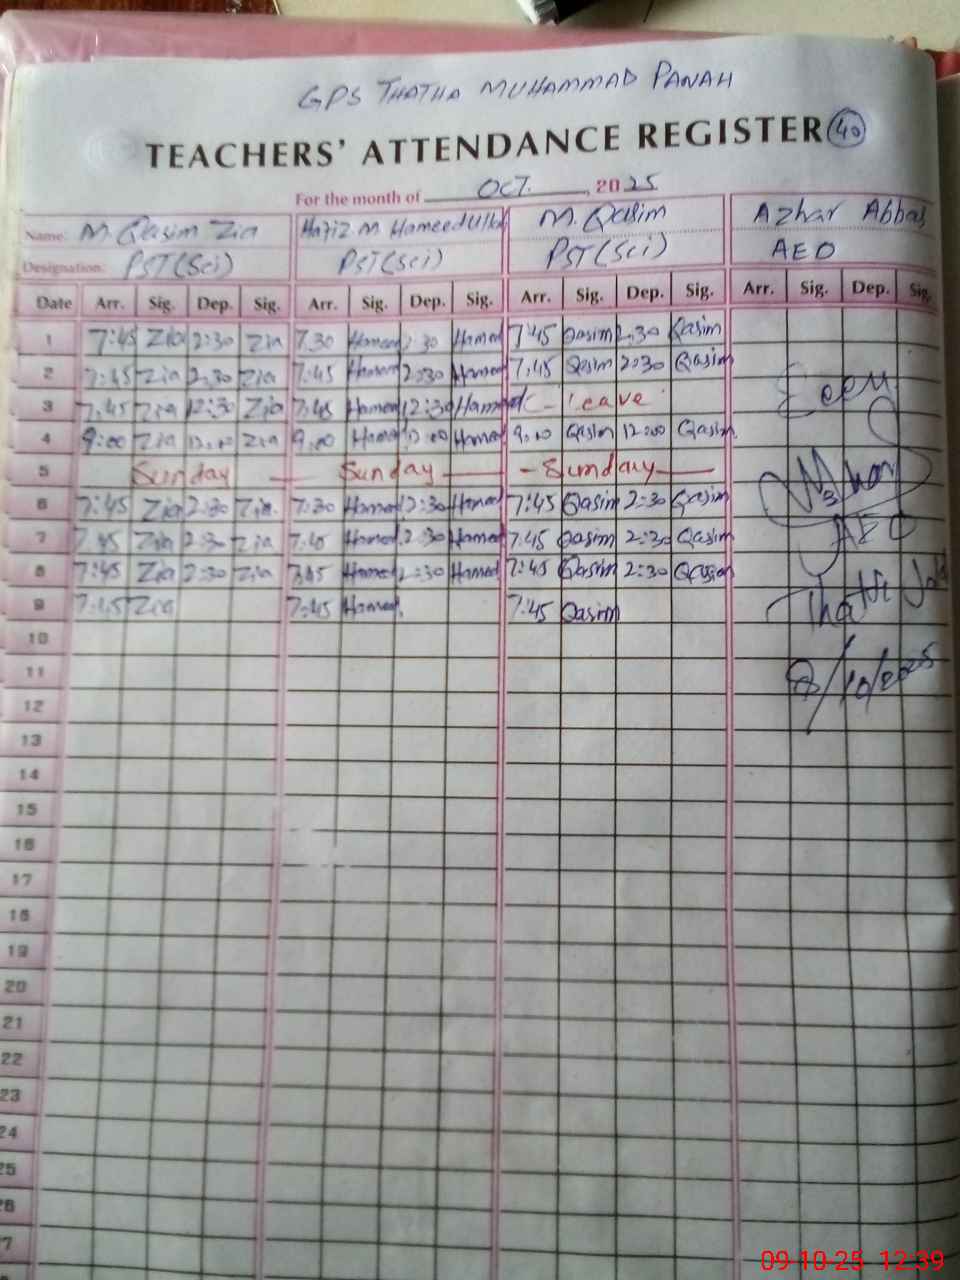 GPS THATHA MUHAMMAD PANAH
TEACHERS' ATTENDANCE REGISTER 40
For the month of OCT. , 2025
Name: M. Qasim Zia Hafiz M Hameedullah M. Qasim Azhar Abbas
Designation: PST(Sci) PST(Sci) PST(Sci) AEO
Date Arr. Sig. Dep. Sig. Arr. Sig. Dep. Sig. Arr. Sig. Dep. Sig. Arr. Sig. Dep. Sig.
1 7:45 Zia 2:30 Zia 7:30 Hamed 2:30 Hamed 7:45 Qasim 2:30 Qasim
2 7:45 Zia 2:30 Zia 7:45 Hamed 2:30 Hamed 7:45 Qasim 2:30 Qasim
3 7:45 Zia 12:30 Zia 7:45 Hamed 12:30 Hamed leave
4 9:00 Zia 12:00 Zia 9:00 Hamed 12:00 Hamed 9:00 Qasim 12:00 Qasim
5 Sunday Sunday Sunday
6 7:45 Zia 2:30 Zia 7:30 Hamed 2:30 Hamed 7:45 Qasim 2:30 Qasim
7 7:45 Zia 2:30 Zia 7:45 Hamed 2:30 Hamed 7:45 Qasim 2:30 Qasim
AEO
8 7:45 Zia 2:30 Zia 7:45 Hamed 2:30 Hamed 7:45 Qasim 2:30 Qasim
9 7:45 Zia 7:45 Hamed 7:45 Qasim
10
11
12
13
14
15
16
17
18
19
20
21
22
23
24
25
26
27
09-10-25 12:39